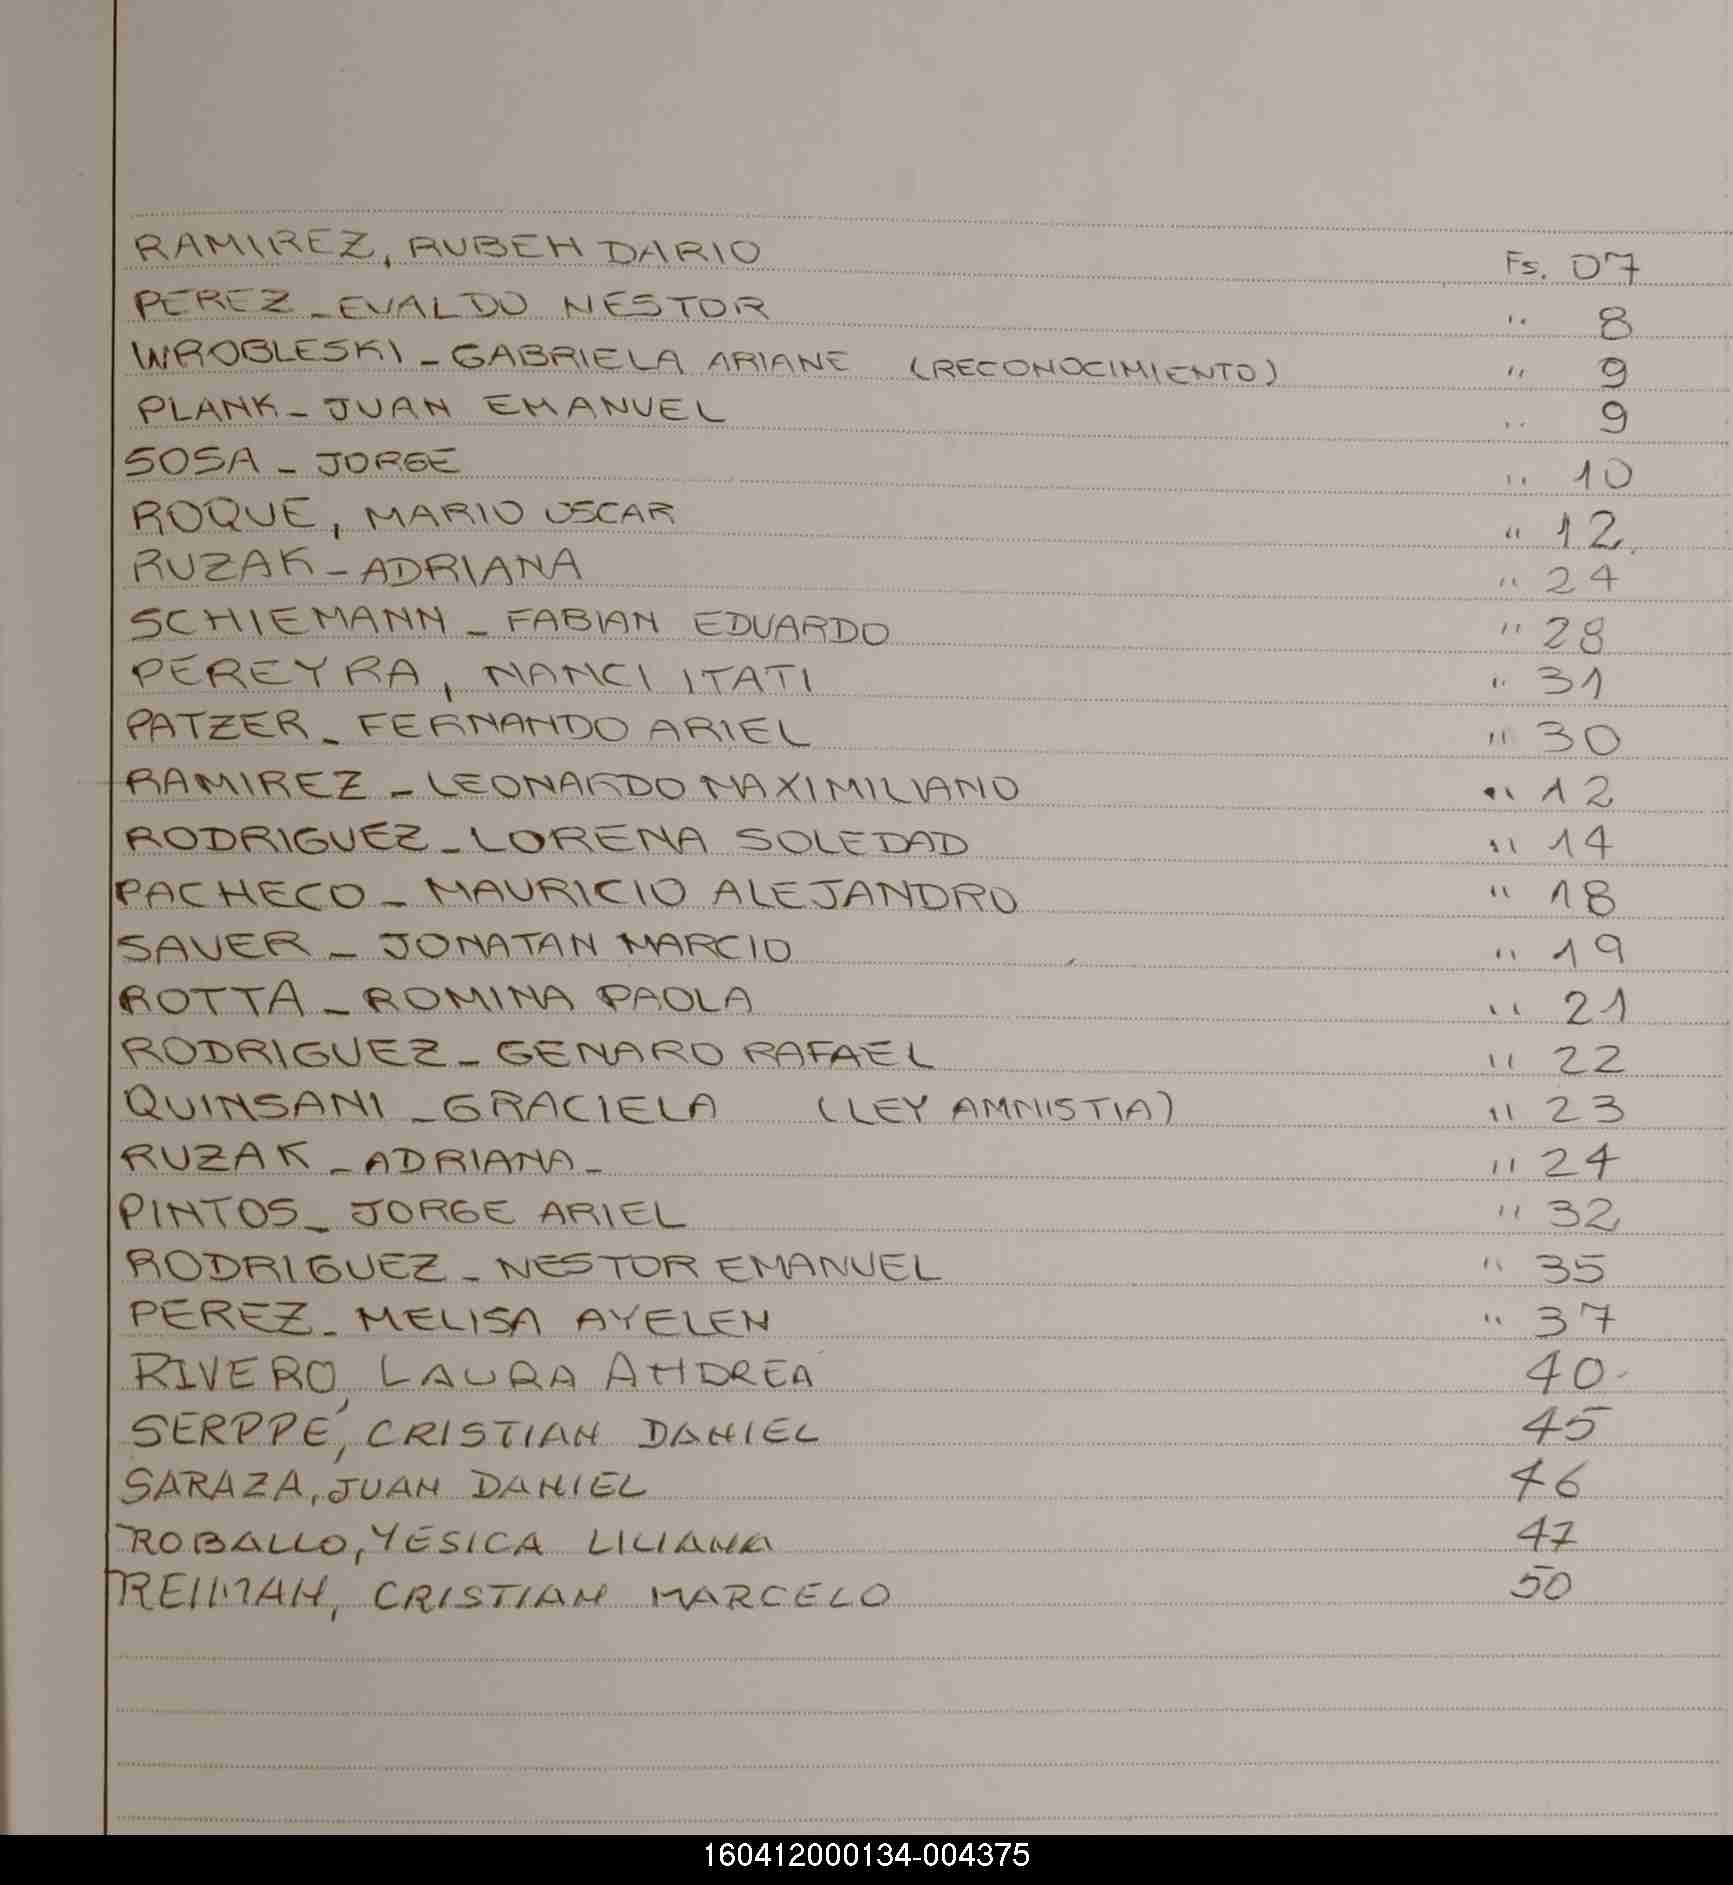 RAMIREZ, RUBEN DARIO Fs. 07
PEREZ - EVALDO NESTOR " 8
WROBLESKI - GABRIELA ARIANE (RECONOCIMIENTO) " 9
PLANK - JUAN EMANUEL " 9
SOSA - JORGE " 10
ROQUE, MARIO OSCAR " 12
RUZAK - ADRIANA " 24
SCHIEMANN - FABIAN EDUARDO " 28
PEREYRA, NANCI ITATI " 31
PATZER - FERNANDO ARIEL " 30
RAMIREZ - LEONARDO MAXIMILIANO " 12
RODRIGUEZ - LORENA SOLEDAD " 14
PACHECO - MAURICIO ALEJANDRO " 18
SAUER - JONATAN MARCIO " 19
ROTTA - ROMINA PAOLA " 21
RODRIGUEZ - GENARO RAFAEL " 22
QUINSANI - GRACIELA (LEY AMNISTIA) " 23
RUZAK - ADRIANA - " 24
PINTOS - JORGE ARIEL " 32
RODRIGUEZ - NESTOR EMANUEL " 35
PEREZ - MELISA AYELEN " 37
RIVERO, LAURA ANDREA 40-
SERPPE, CRISTIAN DANIEL 45
SARAZA, JUAN DANIEL 46
ROBALLO, YESICA LILIANA 47
REIMAN, CRISTIAN MARCELO 50
160412000134-004375